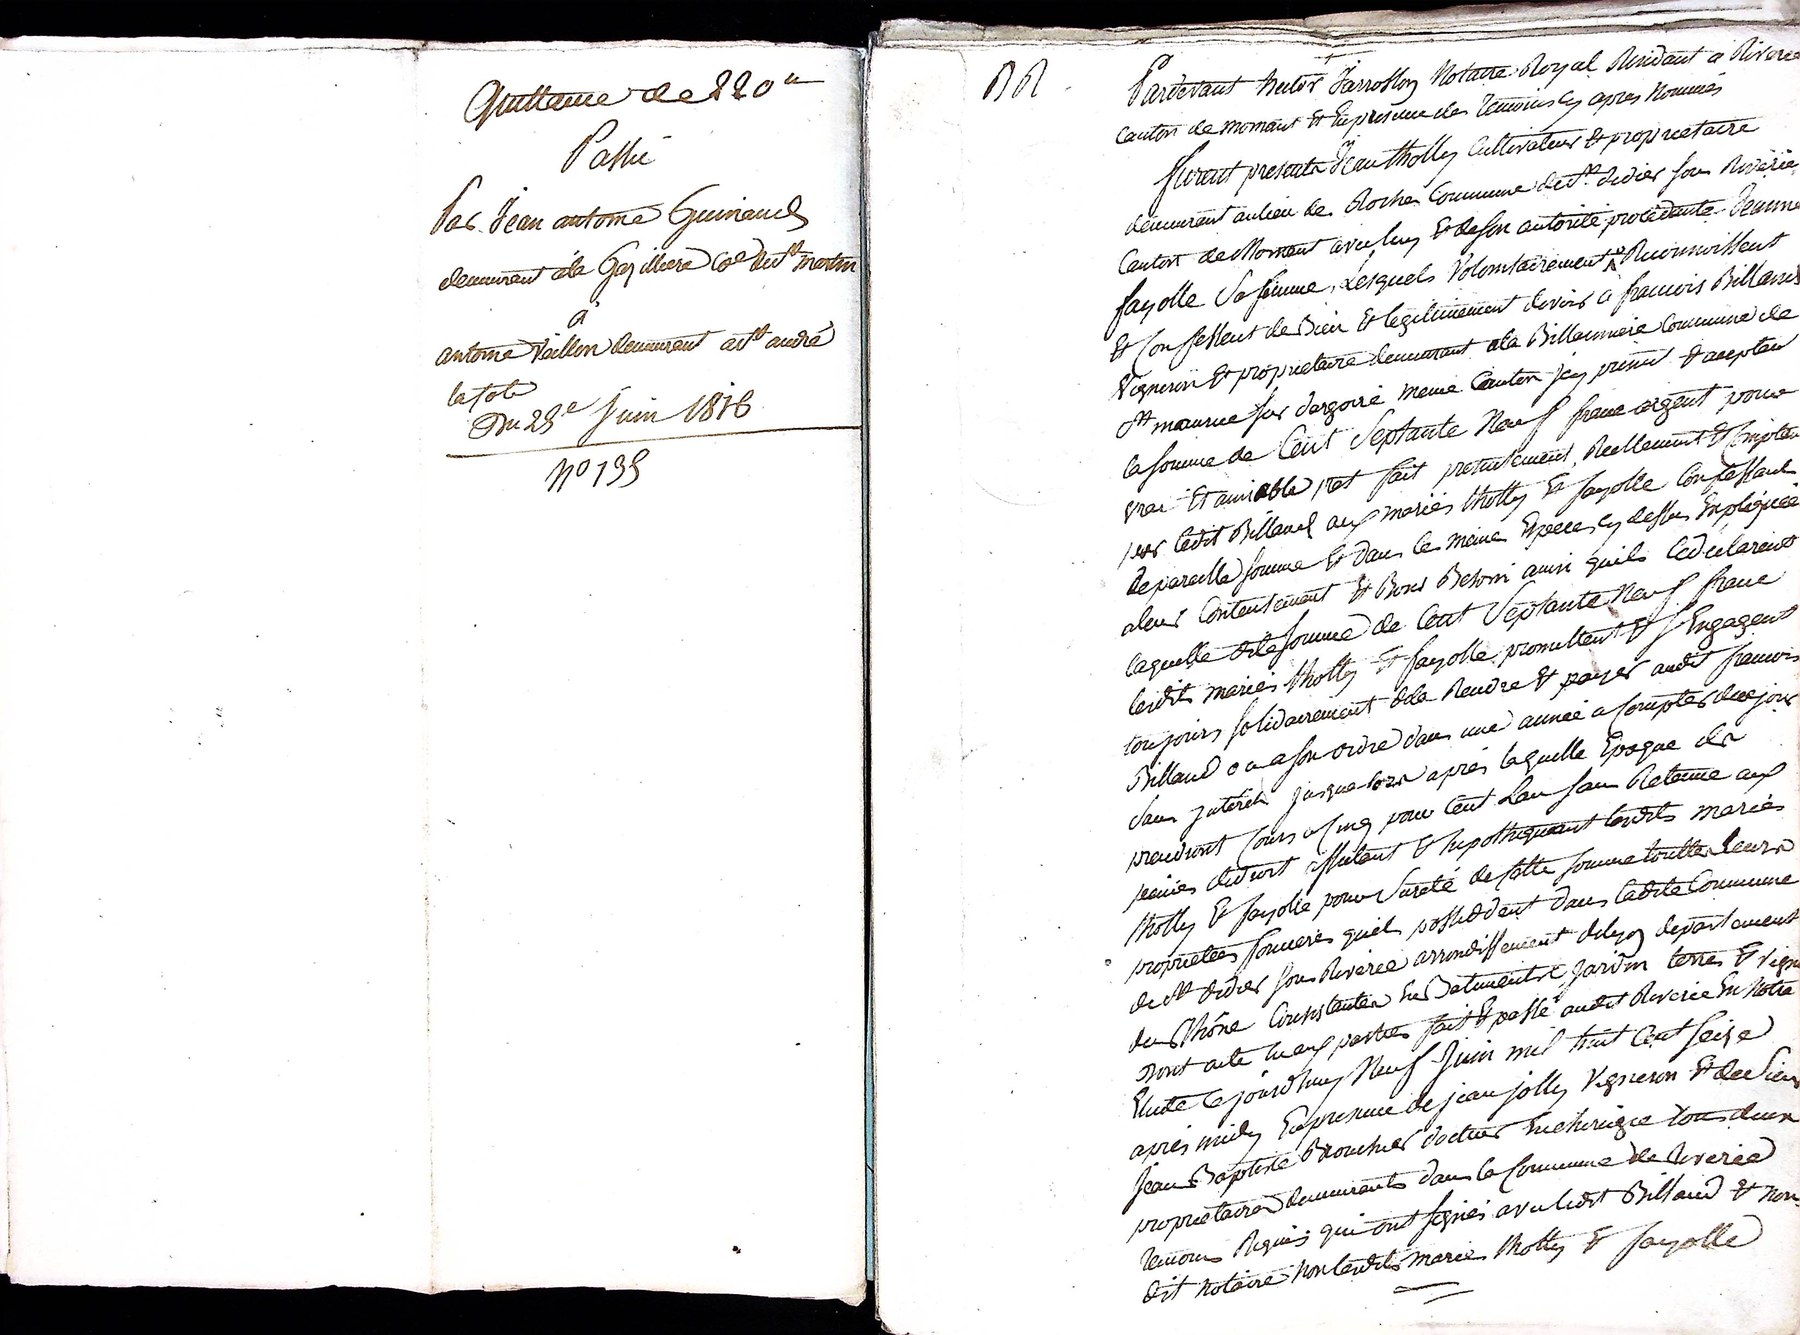 Quittance de 220 "
Passée
Par Jean antoine Guinaud
demeurant à la Gazilliere Ce de St martin
a
antoine Vallin demeurant a St andré
la Cote
Du 23e Juin 1816
No 135
Pardevant hector farrossoy Notaire Royal Residant à Riverie
canton de mornant Et En presence des temoins cy apres Nommés
furent presents Jean tholly Cultivateur & proprietaire
demeurant au lieu de Roches Commune de St didier sous Riverie
Canton de Mornant avec luy Et de son autorité procedante Jeanne
fayolle Sa femme, Lesquels Volontairement Reconnoissent
Et Confessent de Bien Et legitimement devoir a francois Billaud
Vigneron Et proprietaire demeurant a la Billanniere Commune de
St maurice sur dargoire meme Canton icy present & acceptant
la somme de Cent Septante Neuf franc argent pour
vrai Et amiable pret fait presentement Reellement & Comptant
par ledit Billaud aux mariés tholly Et fayolle Confessant
de pareille somme Et dans les meme Especes cy dessus Expliquée
a leur Contentement Et Bons Besoin ainsi quils le declarent
laquelle dite somme de Cent Septante Neuf franc
lesdits mariés tholly Et fayolle promettent Et s'Engagent
toujours solidairement de la Rendre Et payer audit francois
Billaud ou a son ordre dans une année a Compter de ce jour
Sans interets jusqua lors apres laquelle Epoque ils
prendront Cours a Cinq pour Cent L'an sans Retenue aux
peines de droit affectant & hypothequant lesdits mariés
tholly Et fayolle pour Sureté de cette somme touttes leurs
proprietées foncieres quils possedent dans ladite Commune
de St didier sous Riverie arrondissement de lyon departement
du Rhône Consistantes En Batiments Jardin terres Et vigne
Dont acte lu aux parties fait Et passé audit Riverie En Notre
Etude Ce jourdhuy Neuf Juin mil huit Cent Seize
après midy En presence de jean jolly Vigneron Et de Sieur
Jean Baptiste Brouchier docteur En chirurgie tous deux
proprietaires demeurants dans la Commune de Riverie
temoins Requis qui ont signés avec ledit Billaud Et Nous
dit Notaire Non lesdits mariés tholly Et fayolle